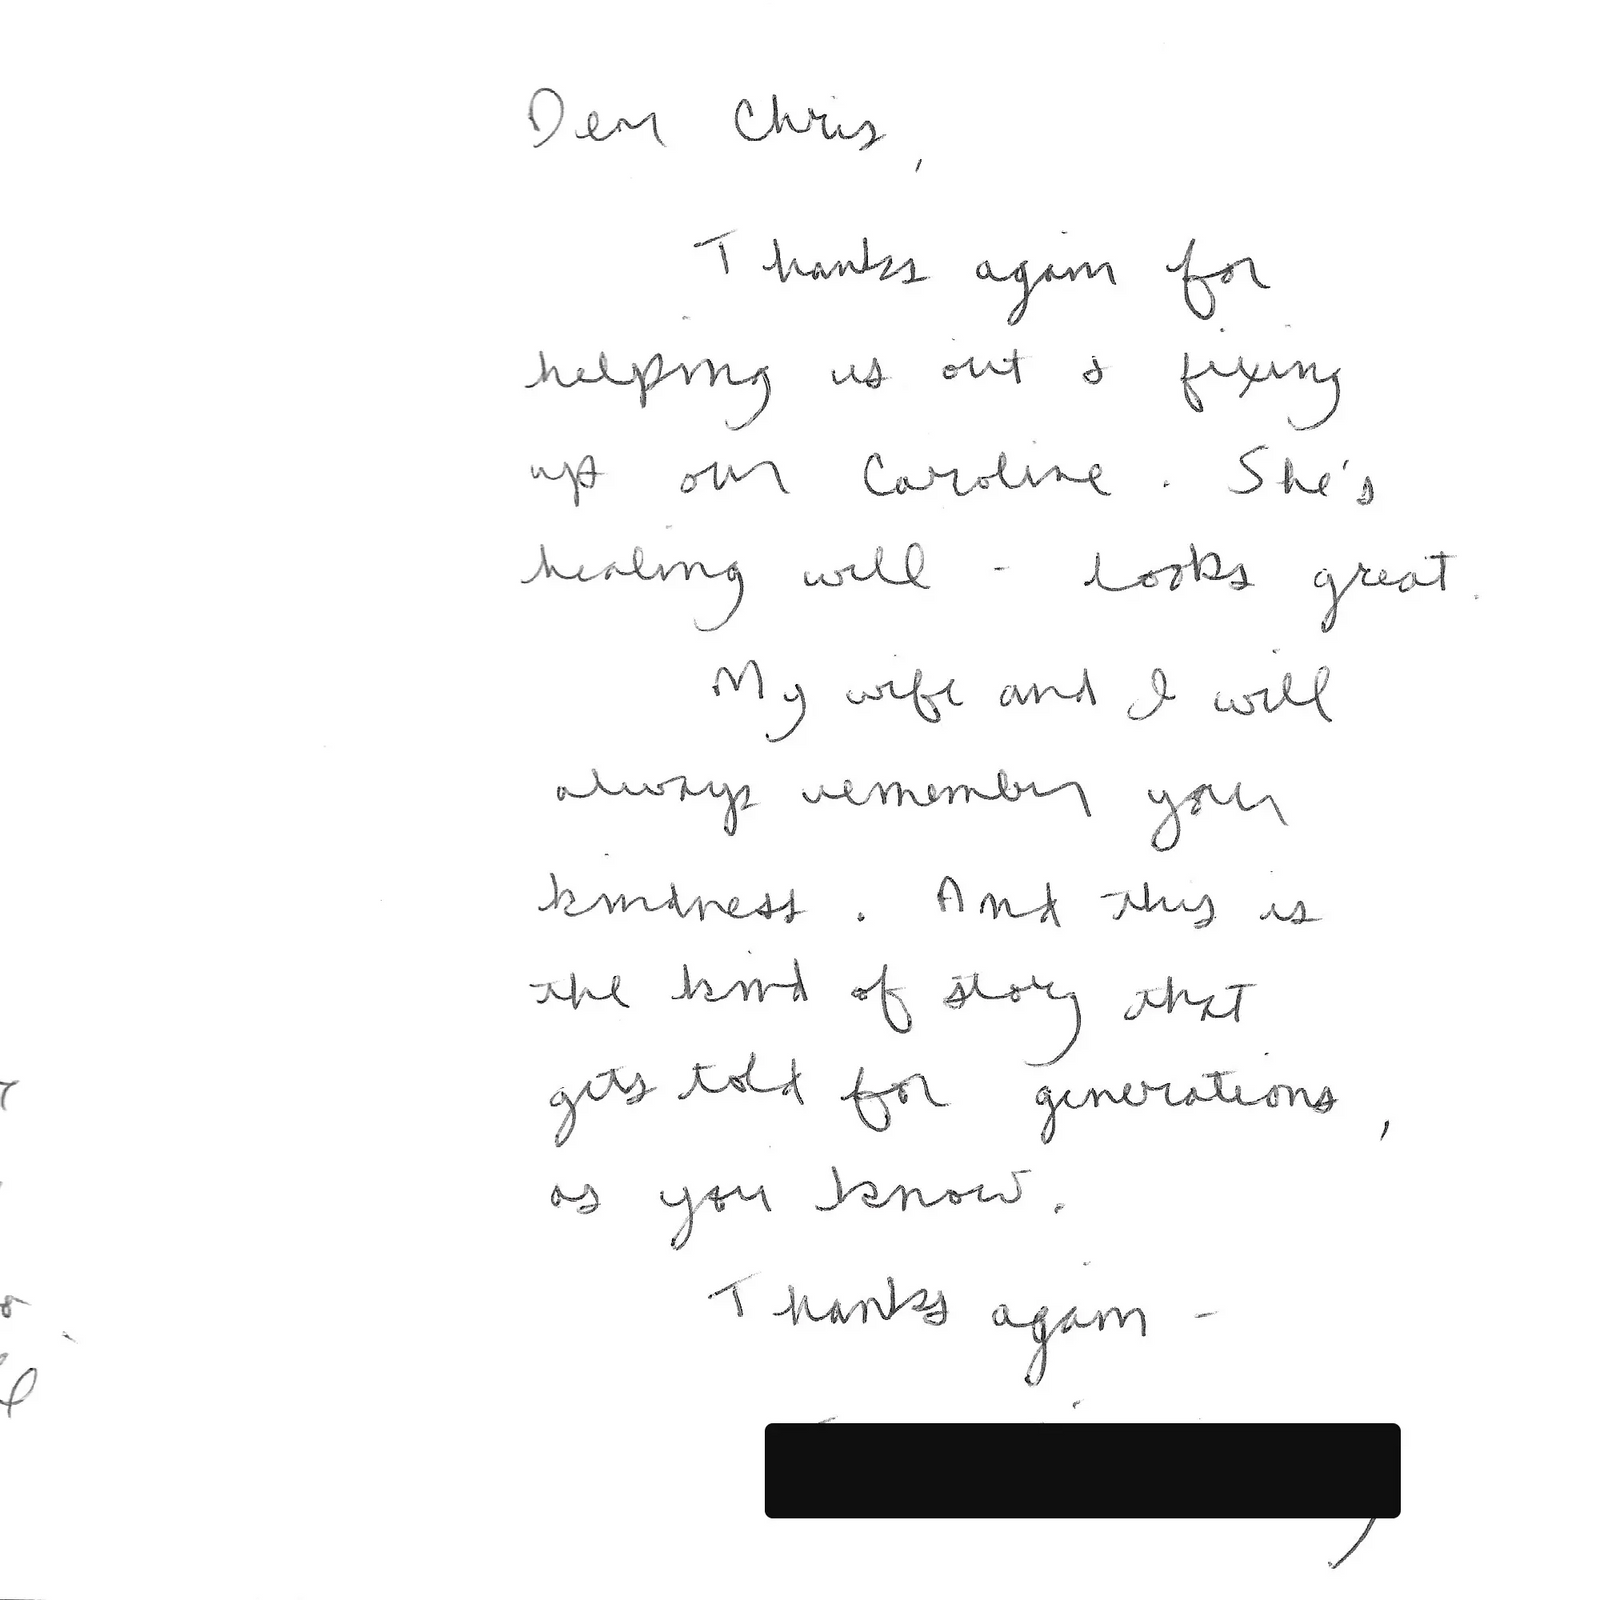 Dear Chris,
Thanks again for
helping us out & fixing
up our Caroline. She's
healing well - looks great.
My wife and I will
always remember your
kindness. And this is
the kind of story that
gets told for generations,
as you know.
Thanks again -